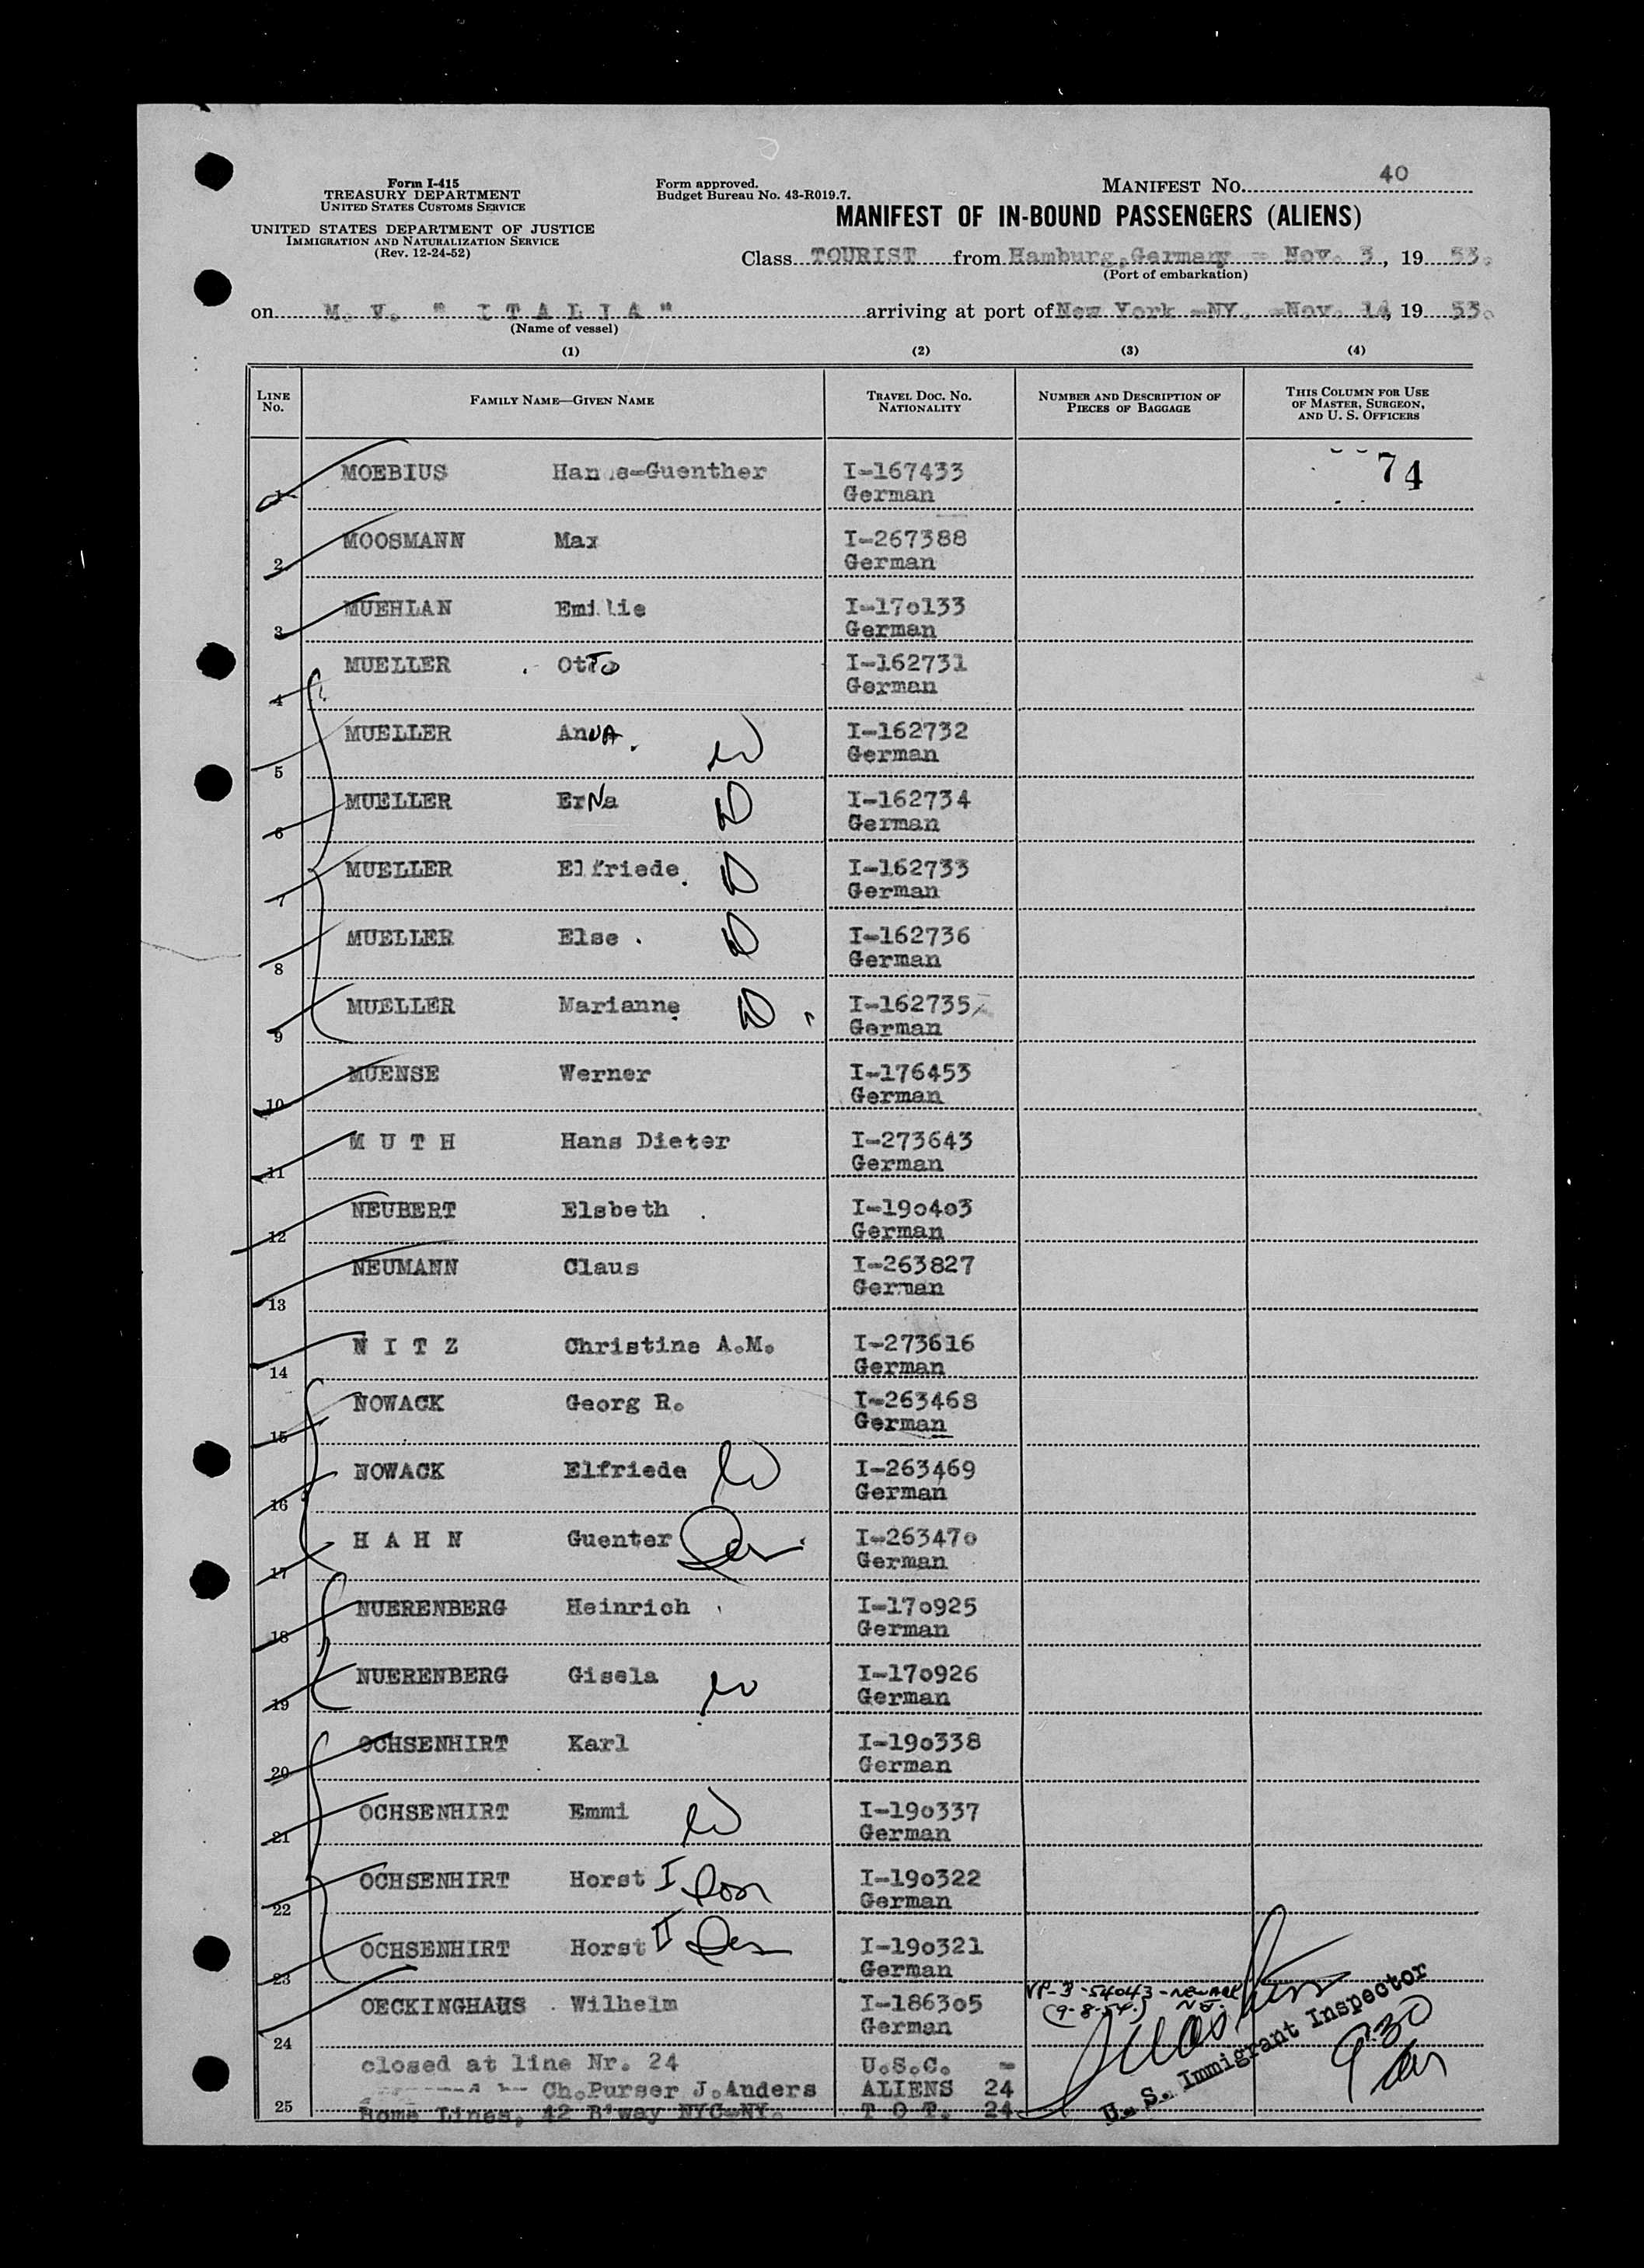 Form I-415
TREASURY DEPARTMENT
UNITED STATES CUSTOMS SERVICE
UNITED STATES DEPARTMENT OF JUSTICE
IMMIGRATION AND NATURALIZATION SERVICE
(Rev. 12-24-52)
Form approved.
Budget Bureau No. 43-R019.7.
MANIFEST No. 40
MANIFEST OF IN-BOUND PASSENGERS (ALIENS)
Class TOURIST from Hamburg, Germany - Nov. 3, 19 53.
(Port of embarkation)
on M. V. " I T A L I A " arriving at port of New York -NY. -Nov. 14, 19 53.
(Name of vessel)
(1) (2) (3) (4)
LINE No. FAMILY NAME—GIVEN NAME TRAVEL DOC. No. NATIONALITY NUMBER AND DESCRIPTION OF PIECES OF BAGGAGE THIS COLUMN FOR USE OF MASTER, SURGEON, AND U. S. OFFICERS
1 MOEBIUS Hans-Guenther I-167433 74
German
2 MOOSMANN Max I-267388
German
3 MUEHLAN Emilie I-170133
German
4 MUELLER Otto I-162731
German
5 MUELLER Anna W I-162732
German
6 MUELLER Erna D I-162734
German
7 MUELLER Elfriede D I-162733
German
8 MUELLER Else D I-162736
German
9 MUELLER Marianne D I-162735
German
10 MUENSE Werner I-176453
German
11 M U T H Hans Dieter I-273643
German
12 NEUBERT Elsbeth I-190403
German
13 NEUMANN Claus I-263827
German
14 N I T Z Christine A.M. I-273616
German
15 NOWACK Georg R. I-263468
German
16 NOWACK Elfriede W I-263469
German
17 H A H N Guenter I-263470
German
18 NUERENBERG Heinrich I-170925
German
19 NUERENBERG Gisela W I-170926
German
20 OCHSENHIRT Karl I-190338
German
21 OCHSENHIRT Emmi W I-190337
German
22 OCHSENHIRT Horst I Son I-190322
German
23 OCHSENHIRT Horst II Son I-190321
German
24 OECKINGHAUS Wilhelm I-186305 VP-3-54043-NEWARK
German (9-8-54) N.J.
closed at line Nr. 24 U.S.C. -
Ch.Purser J.Anders ALIENS 24
25 Home Lines, 42 B'way NYC-NY. T O T. 24
U. S. Immigrant Inspector
930